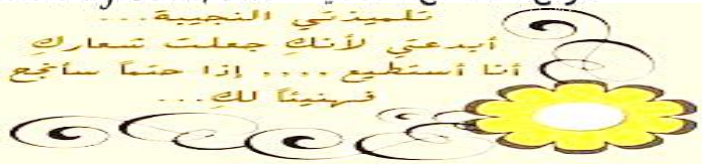 تلميذتي النجيبة...
أبدعتي لأنكِ جعلت شعارك
أنا أستطيع .... إذا حتماً سأنجح
فهنيئاً لك...